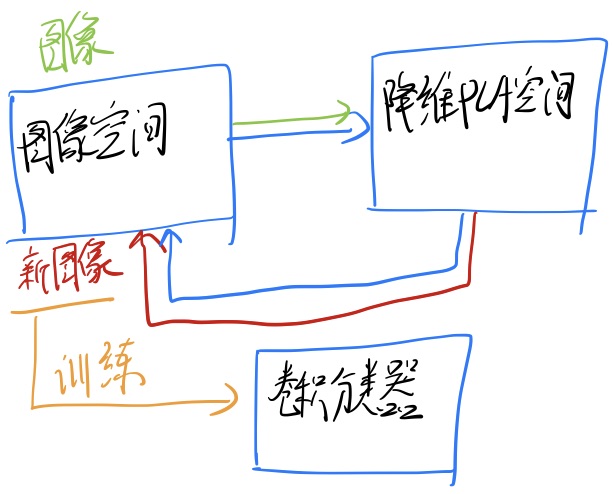 图像
图像空间
降维PCA空间
新图像
训练
卷积分类器